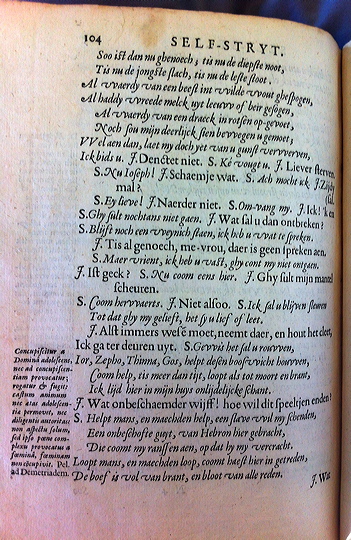 104 SELF-STRYT.
Soo ist dan nu ghenoech; tis nu de diepste noot,
Tis nu de jongste slach, tis nu de leste stoot.
Al waerdy van een beest int wilde wout ghespogen,
Al haddy wreede melck uyt leeuw of beir gesogen,
Al waerdy van een draeck in rotsen op-gevoet,
Noch sou mijn deerlijck sien bewegen u gemoet,
Wel aen dan, laet my doch yet van u gunst verwerven,
Ick bids u. J. Denckt niet. S. Ké vougt u. J. Liever sterven.
S. Nu Joseph! J. Schaemje wat. S. Ach mocht ick J. Zijdy
mal?
S. Ey lieve! J. Naerder niet. S. Om-vang my. J. Ick!
S. Ghy sult nochtans niet gaen. J. Wat sal u dan ontbreken?
S. Blijft noch een weynich staen, ick heb u wat te spreken.
J. Tis al genoech, me-vrou, daer is geen spreken aen,
S. Maer vrient, ick heb u vast, ghy cont my niet ontgaen.
J. Ist geck? S. Nu coom eens hier. J. Ghy sult mijn mantel
scheuren.
S. Coom herwaerts. J. Niet alsoo. S. Ick sal u blijven sleuren
Tot dat ghy my gelieft, het sy u lief of leet.
J. Alst immers wesé moet, neemt daer, en hout het cleet,
Ick ga ter deuren uyt. S. Gewis het sal u rouwen,
Ior, Zepho, Thimna, Gos, helpt desen boosewicht houwen,
Coom help, tis meer dan tijt, loopt als tot moort en brant,
Ick lijd hier in mijn huys onlijdelijcke schant.
J. Wat onbeschaemder wijff! hoe wil dit speeltjen enden?
S. Helpt mans, en maechden help, een slave wil my schenden,
Een onbeschofte guyt, van Hebron hier gebracht,
Die coomt my ranssen aen, op dat hy my vercracht.
Loopt mans, en maechden loop, coomt haest hier in getreden,
De boef is vol van brant, en bloot van alle reden.
J. Wat
Concupiscitur a
Domina adolescens,
nec ad concupiscen-
tiam provocatur;
rogatur & fugit:
castum animum
nec ætas adolescen-
tia permovet, nec
diligentis autoritas:
non aspectu solum,
sed ipso pæne com-
plexu provocatus a
fœmina, fœminam
non cõcupivit. Pel.
ad Demetriadem.